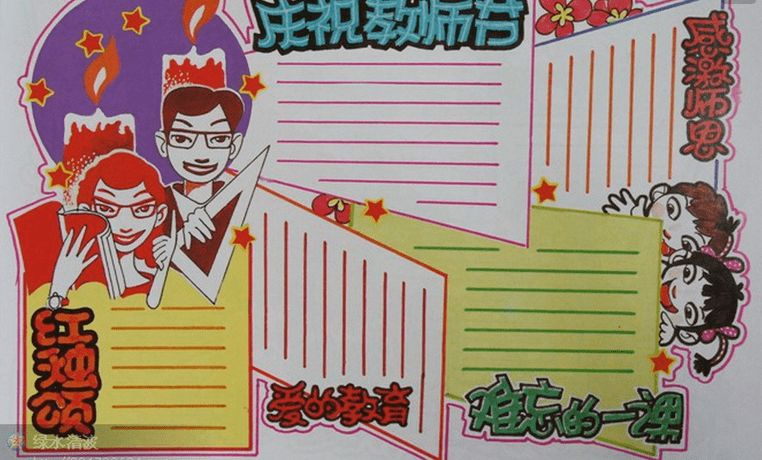 庆祝教师节
感激师恩
红烛颂
爱的教育
难忘的一课
绿水清波